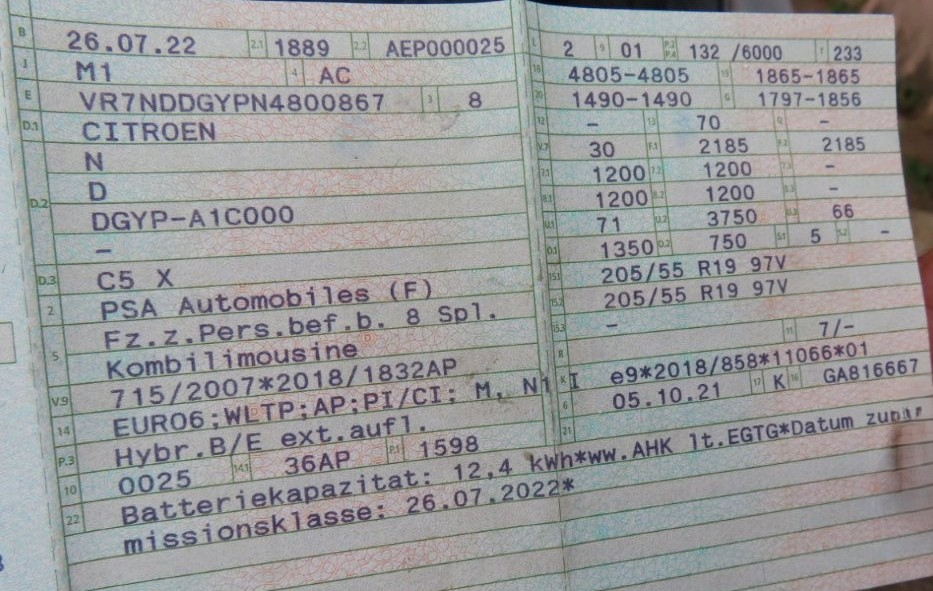 B 26.07.22 2.1 1889 2.2 AEP000025
J M1 4 AC
E VR7NDDGYPN4800867 3 8
D.1 CITROEN
N
D.2 D
DGYP-A1C000
–
D.3 C5 X
2 PSA Automobiles (F)
Fz.z.Pers.bef.b. 8 Spl.
5 Kombilimousine
V.9 715/2007*2018/1832AP
14 EURO6;WLTP;AP;PI/CI; M, N1 I
P.3 Hybr.B/E ext.aufl.
10 0025 14.1 36AP P.1 1598
22 Batteriekapazitat: 12,4 kwh*ww.AHK lt.EGTG*Datum zur
missionsklasse: 26.07.2022*
L 2 9 01 P.2 P.4 132 /6000 T 233
18 4805-4805 19 1865-1865
20 1490-1490 G 1797-1856
12 – 13 70 Q –
V.7 30 F.1 2185 F.2 2185
7.1 1200 7.2 1200 7.3 –
8.1 1200 8.2 1200 8.3 –
U.1 71 U.2 3750 U.3 66
O.1 1350 O.2 750 S.1 5 S.2 –
15.1 205/55 R19 97V
15.2 205/55 R19 97V
15.3 –
R 11 7/-
K e9*2018/858*11066*01
6 05.10.21 17 K 16 GA816667
21